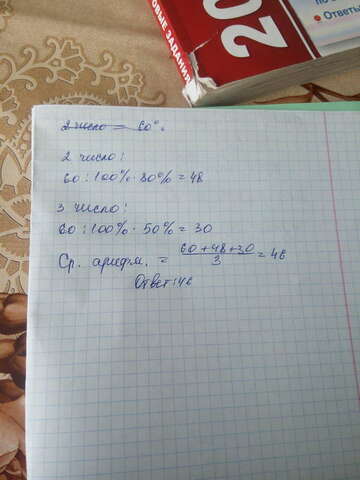 20
ОВЫЕ ЗАДАНИЯ
• Ответы
2 число = 60°.
2 число:
60 : 100% · 80% = 48
3 число:
60 : 100% · 50% = 30
Ср. арифм. = 60+48+30 / 3 = 46
Ответ: 46